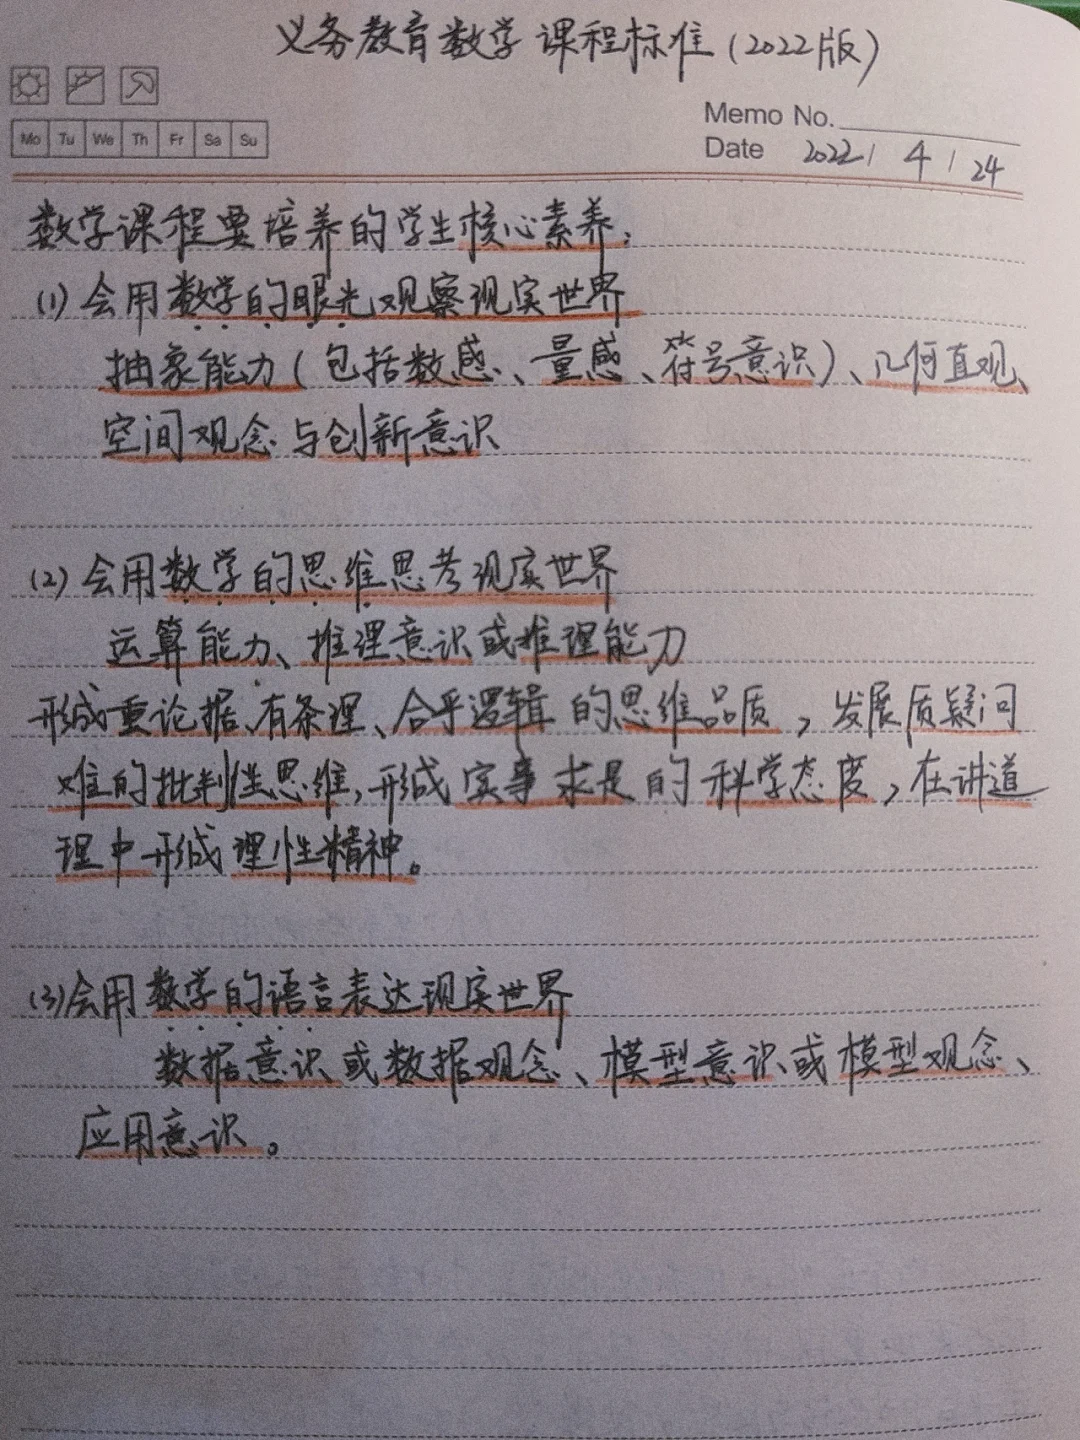 义务教育数学课程标准(2022版)
Memo No.
Mo Tu We Th Fr Sa Su
Date 2022 / 4 / 24
数学课程要培养的学生核心素养:
(1) 会用数学的眼光观察现实世界
抽象能力(包括数感、量感、符号意识)、几何直观、
空间观念与创新意识
(2) 会用数学的思维思考现实世界
运算能力、推理意识或推理能力
形成重论据、有条理、合乎逻辑的思维品质,发展质疑问
难的批判性思维,形成实事求是的科学态度,在讲道
理中形成理性精神。
(3) 会用数学的语言表达现实世界
数据意识或数据观念、模型意识或模型观念、
应用意识。